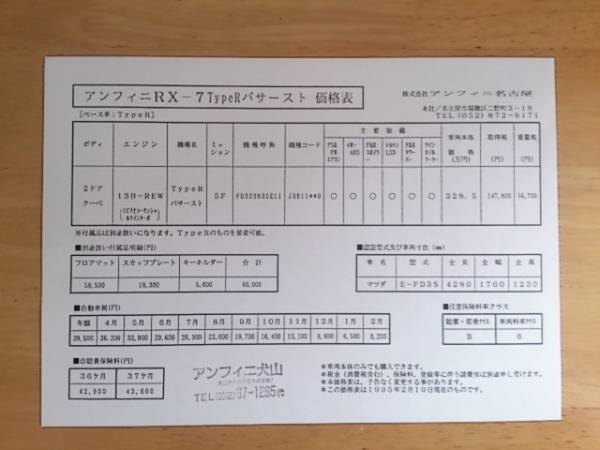 アンフィニRX−7TypeRバサースト 価格表
株式会社アンフィニ名古屋
本社/名古屋市瑞穂区二野町3−18
TEL(052)872−8171
[ベース車:TypeR]
ボディ エンジン 機種名 ミッション 機種呼称 機種コード 主要装備 車両本体価格(万円) 取得税(円) 重量税(円)
2ドアクーペ 13B−REW TypeRバサースト 5F ○ ○ ○ ○ ○ ○ 328.5 147,800 56,700
※付属品は別途扱いになります。TypeRのものを装着可能。
■別途扱い付属品明細(円)
フロアマット スカッフプレート キーホルダー 合計
18,300 5,000
■認証型式及び車両寸法(mm)
車名 型式 全長 全幅 全高
マツダ E−FD3S 4280 1760 1230
■自動車税(円)
年額 4月 5月 6月 7月 8月 9月 10月 11月 12月 1月 2月
39,500 36,200 32,900 29,600 26,300 23,000 19,700 16,400 13,100 9,800 6,500 3,200
■任意保険料率クラス
■自賠責保険料(円)
36ケ月 37ケ月
42,900 43,800
アンフィニ犬山
※車両本体のみでも購入できます。
※税金(消費税含む)、保険料、登録等に伴う諸費用は別途申し受けます。
※本価格表は、予告なく変更する事があります。
※この価格表は1995年2月10日現在のものです。